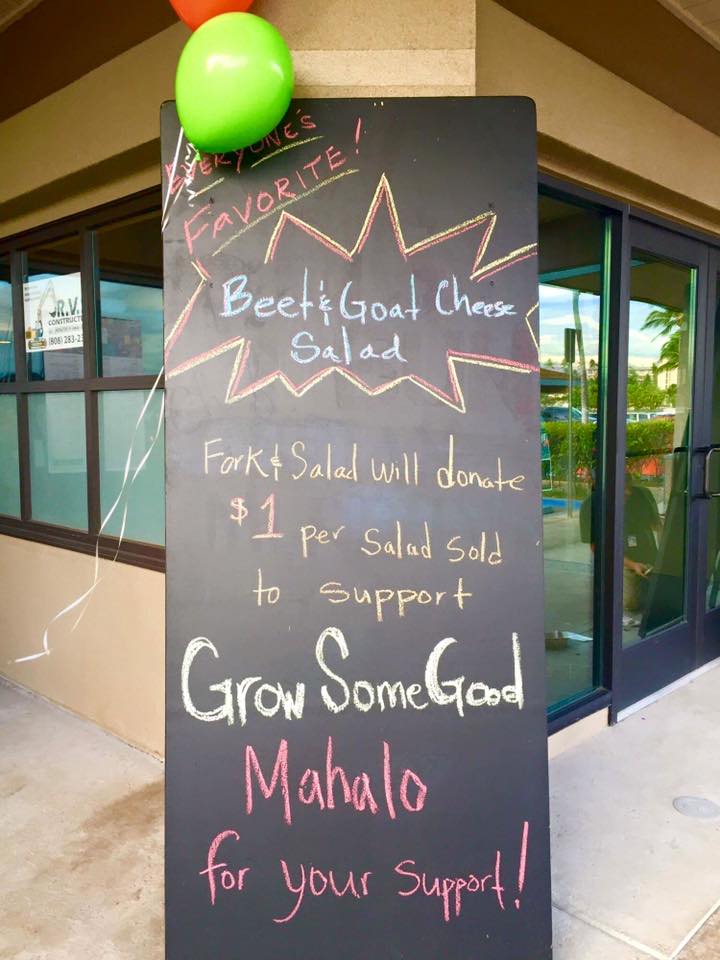 EVERYONE'S
FAVORITE!
Beet & Goat Cheese
Salad
Fork & Salad will donate
$1 per Salad sold
to support
Grow Some Good
Mahalo
for your support!
JR.V.
CONSTRUCT
(808) 283-2